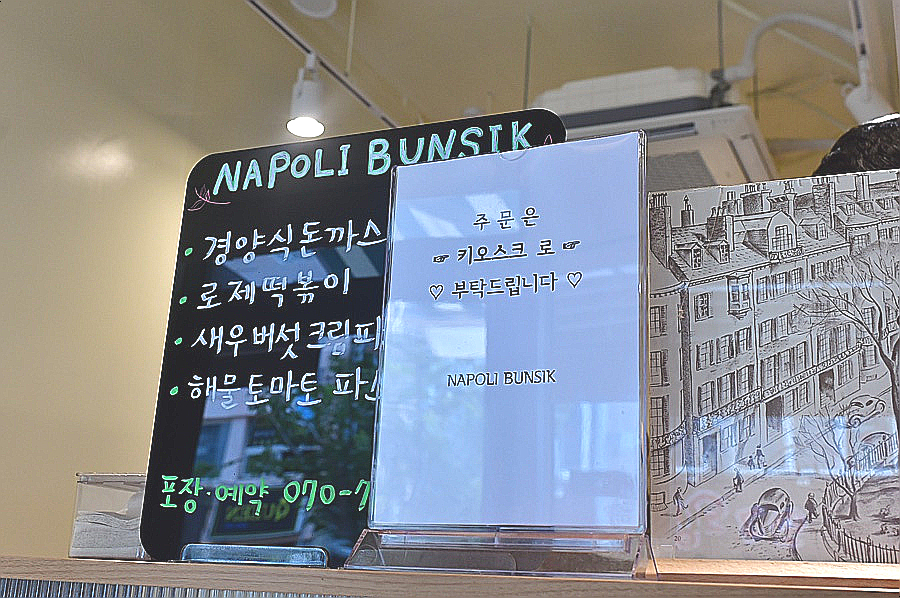 NAPOLI BUNSIK
• 경양식돈까스
• 로제떡볶이
• 새우버섯크림파
• 해물토마토 파스
포장·예약 070-7
주문은
☞ 키오스크 로 ☞
♡ 부탁드립니다 ♡
NAPOLI BUNSIK
20